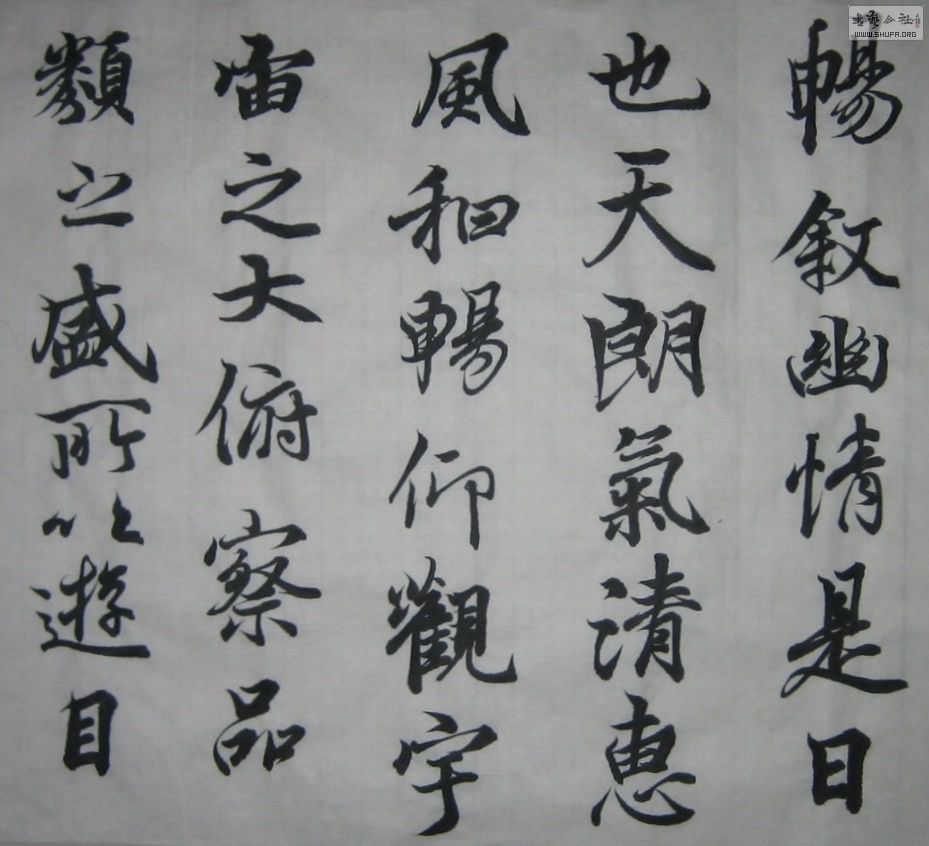 暢叙幽情是日
也天朗氣清惠
風和暢仰觀宇
宙之大俯察品
類之盛所以遊目
書藝公社
WWW.SHUFA.ORG